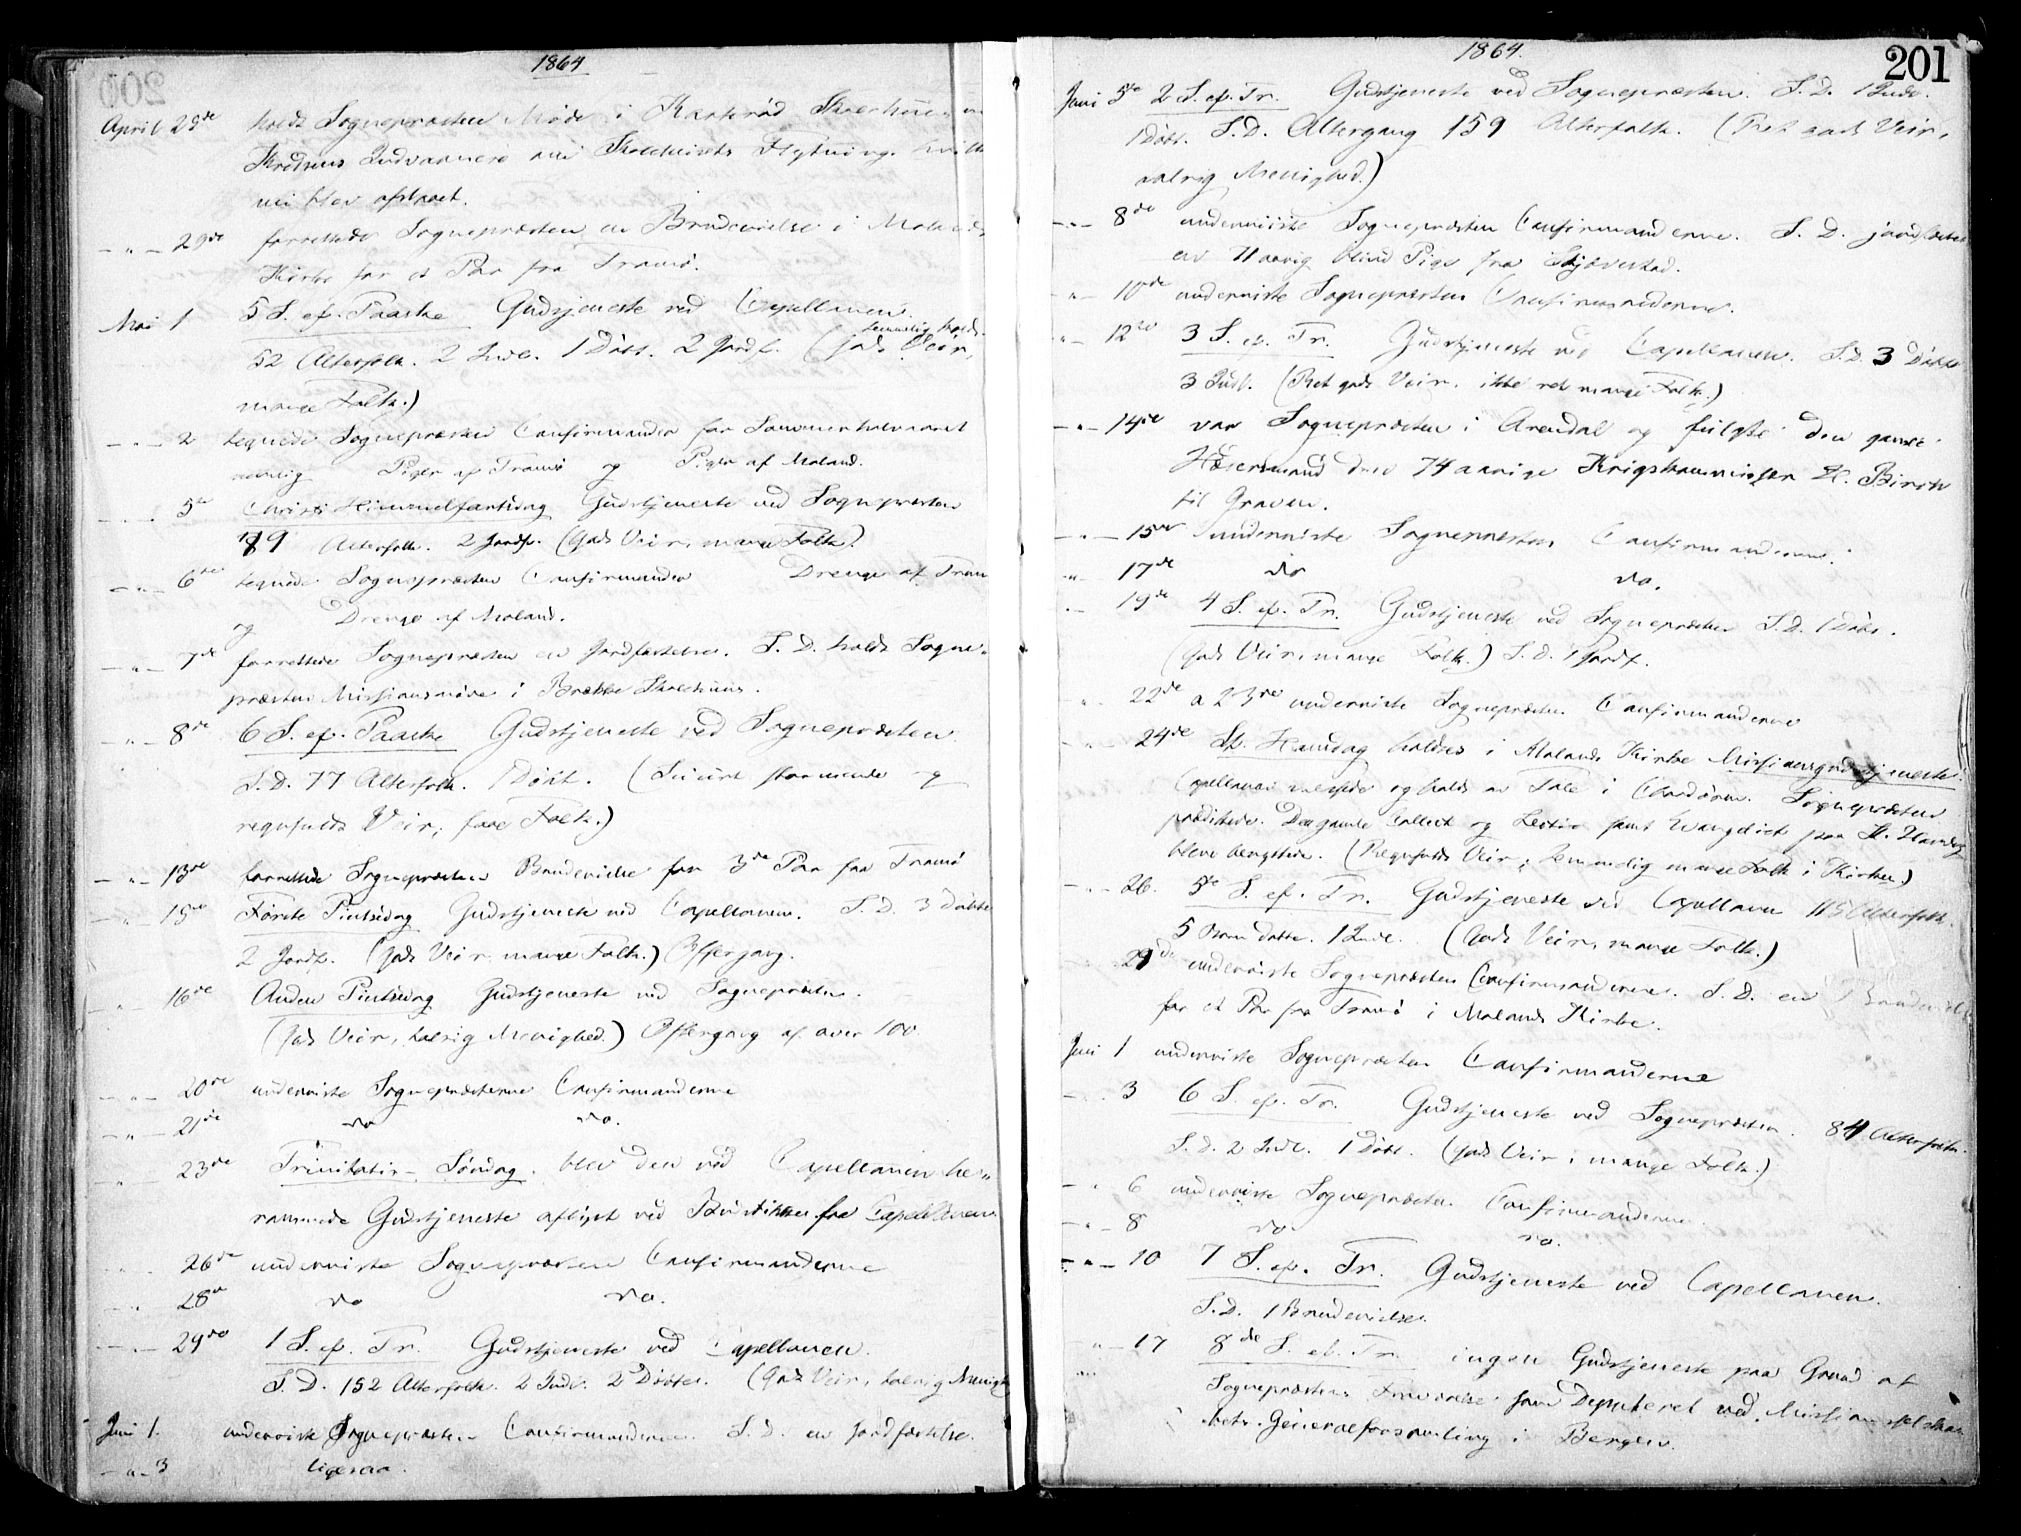 1864
April 29de holdt Sognepræsten Møde i Skolehuus
Kredsens Indvaanere om Skolehusets Flytning, hvilk
blev afslaaet.
- " - 29de forrettede Sognepræsten en Brudevielse i Molands
Kirke for et Par fra Tromø.
Mai 1 5 S. ef. Paaske Gudstjeneste ved Capellanen.
52 Alterfolk. 2 Indl. 1 Døbt. 2 Jordf. (Godt Veir, temmelig
mange Folk.)
- " - 2 tegnede Sognepræsten Confirmander for Sommerhalvaaret
nemlig Piger af Tromø og Piger af Moland.
- " - 5te Christi Himmelfartsdag Gudstjeneste ved Sognepræsten
Alterfolk. 2 Jordf. (Godt Veir, mange Folk.)
- " - 6te tegnede Sognepræsten Confirmander Drenge af Trom
og Drenge af Moland.
- " - 7de forrettede Sognepræsten en Jordfæstelse. S. D. holdt Sogne-
præsten Missionsmøde i Brække Skolehuus.
- " - 8de 6 S. ef. Paaske Gudstjeneste ved Sognepræsten
S. D. 77 Alterfolk. 1 Døbt. ( stormende og
regnfuldt Veir, faae Folk.)
- " - 13de forrettede Sognepræsten Brudevielse for 3de Par fra Tromø
- " - 15de Første Pintsedag Gudstjeneste ved Capellanen. S. D. 3 Døbte
2 Jordf. (Godt Veir, mange Folk.) Offergang.
- " - 16de Anden Pintsedag Gudstjeneste ved Sognepræsten.
(Godt Veir, talrig Menighed.) Offergang af over 100.
- " - 20de underviste Sognepræsten Confirmanderne
- " - 21de do do.
- " - 23de Trinitatis-Søndag. blev den ved Capellanen be-
rammede Gudstjeneste aflyst ved fra Capellanen
- " - 26de underviste Sognepræsten Confirmanderne
- " - 28de do do.
- " - 29de 1 S. ef. Tr. Gudstjeneste ved Capellanen.
S. D. 152 Alterfolk. 2 Indl. 2 Døbte. (Godt Veir, talrig Menigh
Juni 1. underviste Sognepræsten Confirmanderne. S. D. en Jordfæstelse.
- " - 3 ligesaa.
1864.
201
Juni 5te 2 S. ef. Tr. Gudstjeneste ved Sognepræsten. S. D. 1 Indl.
1 Døbt. S. D. Altergang 159 Alterfolk. (Ret godt Veir,
talrig Menighed.)
- " - 8de underviiste Sognepræsten Confirmanderne. S. D. jordfæstet
en 11 aarig blind Pige fra
- " - 10de underviste Sognepræsten Confirmanderne.
- " - 12te 3 S. ef. Tr. Gudstjeneste ved Capellanen. S. D. 3 Døbte
3 Indl. (Ret godt Veir, ikke ret mange Folk.)
- " - 14de var Sognepræsten i Arendal og fulgte den gamle
Hædersmand den 74 aarige Krigskommissær H. Birch
til Graven.
- " - 15de underviste Sognepræsten Confirmanderne.
- " - 17de do do.
- " - 19de 4 S. ef. Tr. Gudstjeneste ved Sognepræsten S. D. 1 Døbt.
(Godt Veir, mange Folk.) S. D. 1 Jordf.
- " - 22de a 23de underviste Sognepræsten Confirmanderne
- " - 24de St. Hansdag holdtes i Molands Kirke Missionsgudstjeneste.
Capellanen messede og holdt en Tale i Chordøren. Sognepræsten
prædikede. Den gamle Collect og Lectie samt Evangeliet paa St. Hansdag
bleve benyttede. (Regnfuldt Veir, temmelig mange Folk i Kirken.)
- " - 26. 5te S. ef. Tr. Gudstjeneste ved Capellanen 115 Altefolk.
5 Børn døbte. 1 Indl. (Godt Veir, mange Folk.)
29de underviste Sognepræsten Confirmanderne. S. D. en Brudevielse
for et Par fra Tromø i Molands Kirke.
Juli 1 underviste Sognepræsten Confirmanderne
- " - 3 6 S. ef. Tr. Gudstjeneste ved Sognepræsten. 84 Alterfolk.
S. D. 2 Indl. 1 Døbt. (Godt Veir, mange Folk.)
- " - 6 underviste Sognepræsten Confirmanderne.
- " - 8 do do.
- " - 10 7 S. ef. Tr. Gudstjeneste ved Capellanen.
S. D. 1 Brudevielse.
- " - 17 8de S. ef. Tr. ingen Gudstjeneste paa Grund af
Sognepræstens Fraværelse som Deputeret ved Missionsselskab
bets Generalforsamling i Bergen.